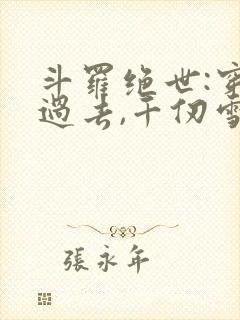 斗羅绝世:穿
過去,千仞雪
張永年